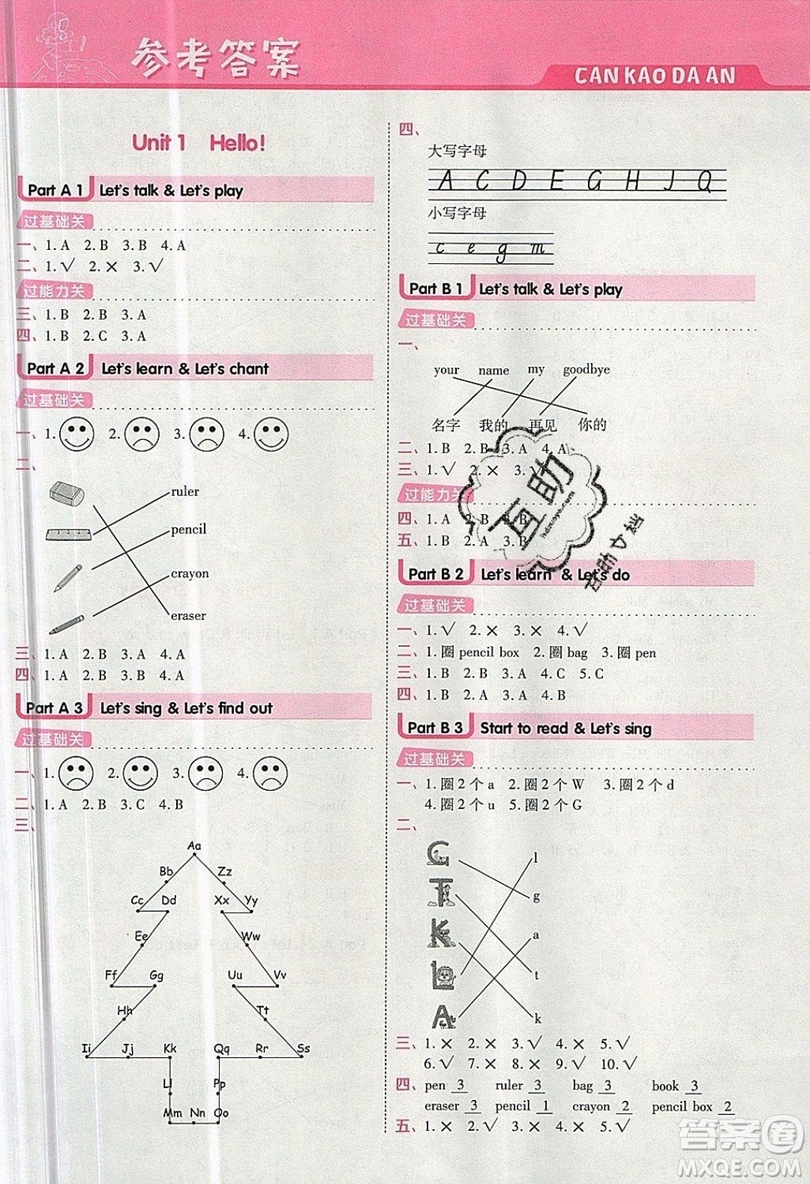 参考答案
CAN KAO DA AN
Unit 1 Hello!
Part A 1 Let's talk & Let's play
过基础关
一、1. A 2. B 3. B 4. A
二、1. √ 2. × 3. √
过能力关
三、1. B 2. B 3. A
四、1. B 2. C 3. A
Part A 2 Let's learn & Let's chant
过基础关
一、1. 2. 3. 4.
二、
ruler
pencil
crayon
eraser
三、1. A 2. B 3. A 4. B
四、1. A 2. B 3. B 4. A
Part A 3 Let's sing & Let's find out
过基础关
一、1. 2. 3. 4.
二、1. A 2. B 3. C 4. B
三、
Aa
Bb Zz
Cc Dd Xx Yy
Ee Ww
Ff Gg Uu Vv
Hh Tt
Ii Jj Kk Qq Rr Ss
Ll Pp
Mm Nn Oo
四、
大写字母
A C D E G H J Q
小写字母
c e g m
Part B 1 Let's talk & Let's play
过基础关
一、
your name my goodbye
名字 我的 再见 你的
二、1. B 2. B 3. A 4. A
三、1. √ 2. × 3. √
过能力关
四、1. A 2. B 3. B 4. B
五、1. B 2. A 3. B
Part B 2 Let's learn & Let's do
过基础关
一、1. √ 2. × 3. × 4. √
二、1. 圈 pencil box 2. 圈 bag 3. 圈 pen
三、1. A 2. B 3. A 4. C 5. C
四、1. B 2. A 3. B 4. A
Part B 3 Start to read & Let's sing
过基础关
一、1. 圈 2 个 a 2. 圈 2 个 W 3. 圈 2 个 d
4. 圈 2 个 u 5. 圈 2 个 G
二、
G l
T g
K a
L t
A k
三、1. × 2. × 3. √ 4. × 5. √
6. √ 7. × 8. √ 9. × 10. √
四、pen 3 ruler 3 bag 3 book 3
eraser 3 pencil 1 crayon 2 pencil box 2
五、1. × 2. √ 3. √ 4. × 5. √
互助
答案圈
MXQE.COM